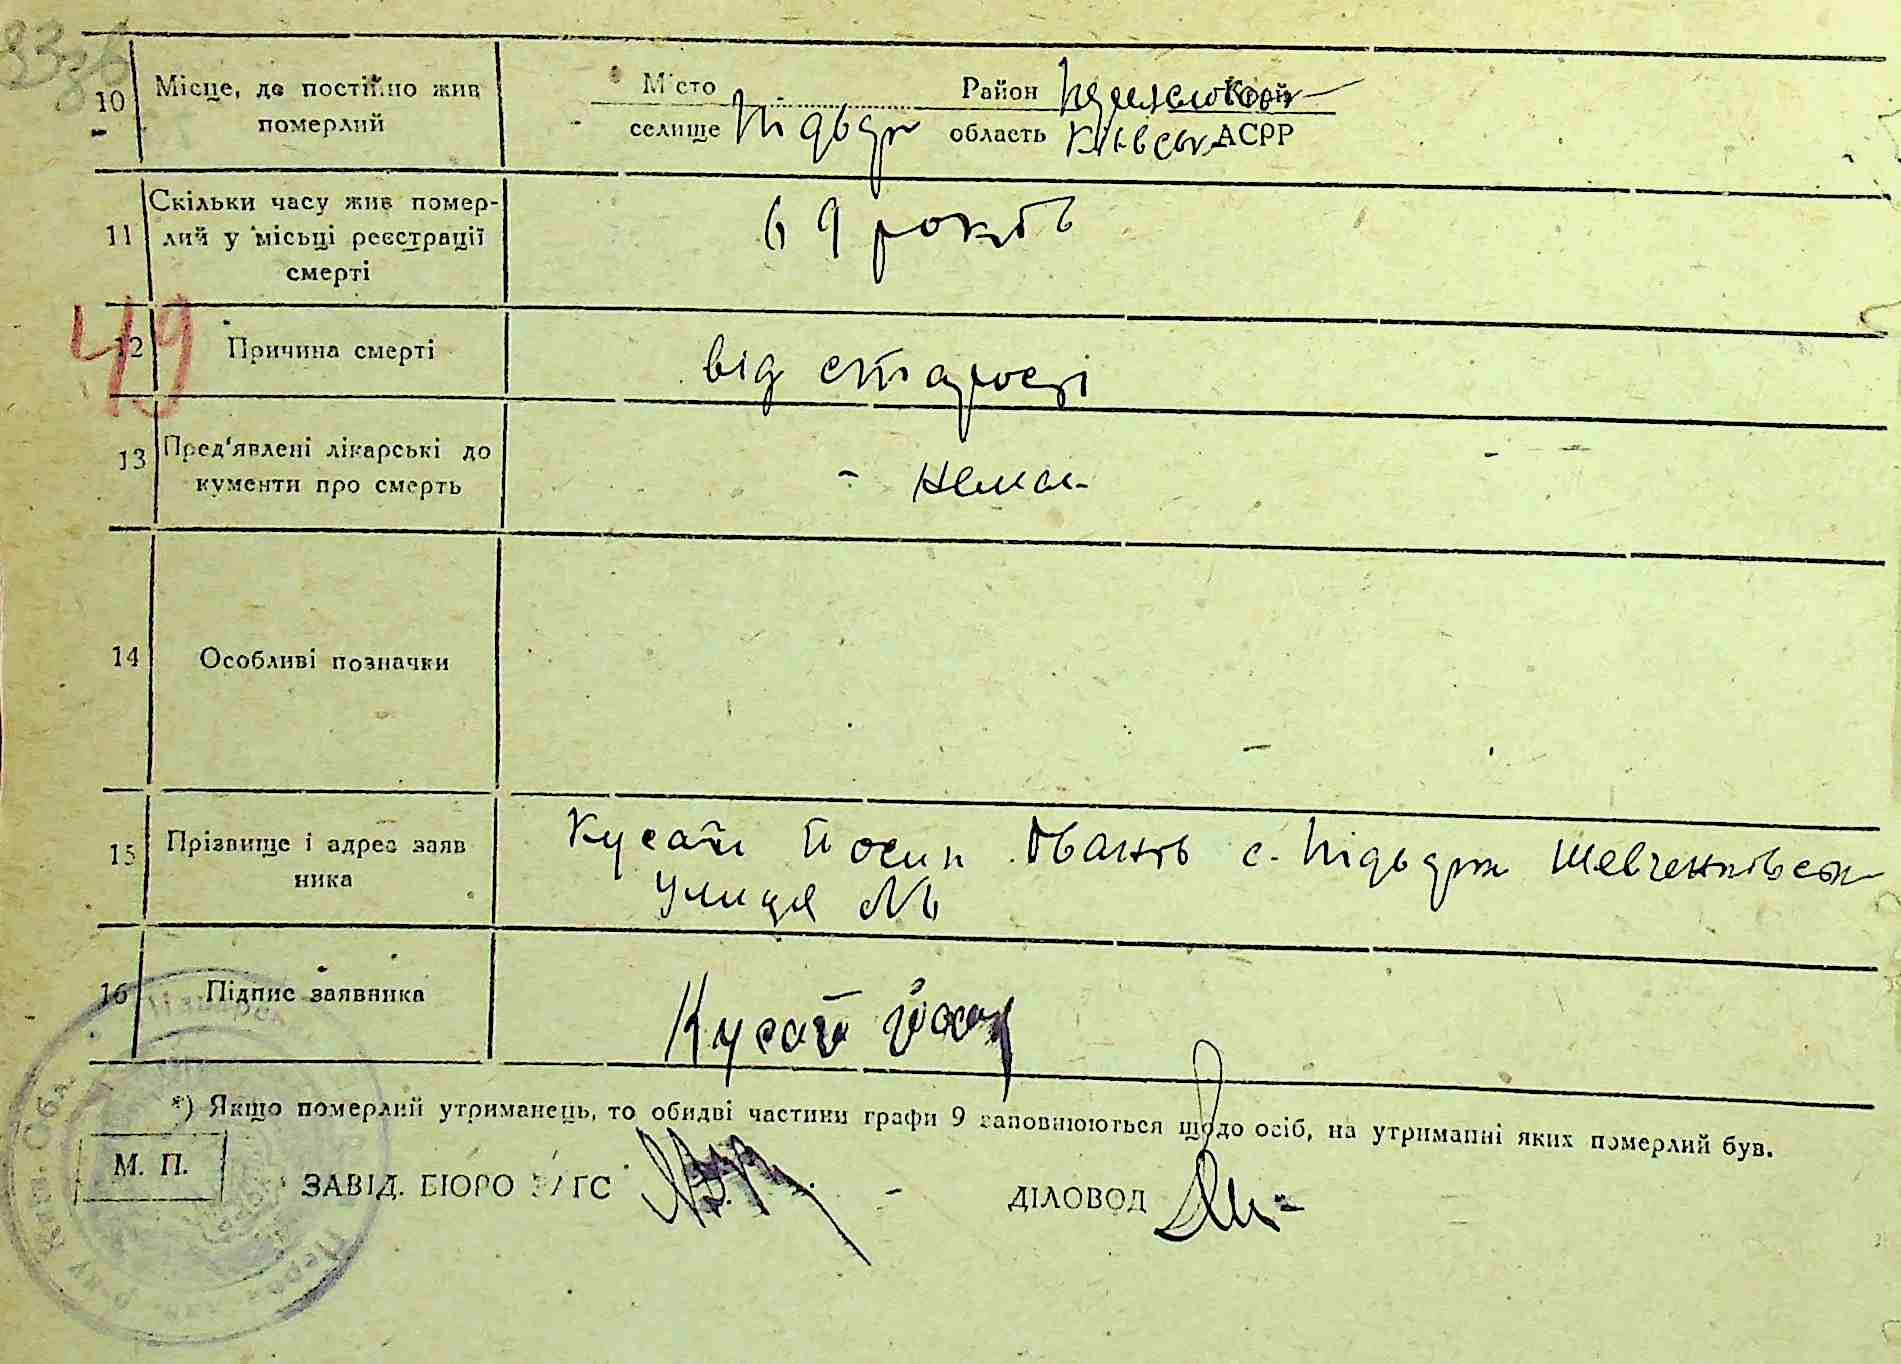 10 Місце, де постійно жив померлий
Місто Район Край
селище Підвар область Київськ АСРР
11 Скільки часу жив помер-
лий у місьці реєстрації
смерті
69 років
49
12 Причина смерті
від старості
13 Пред'явлені лікарські до
кументи про смерть
- нема -
14 Особливі позначки
15 Прізвище і адрес заяв
ника
Кусай Йосип с. Підварк Шевченківськ
улиця №
16 Підпис заявника
Кусай Йосип
*) Якщо померлий утриманець, то обидві частини графи 9 заповнюються щодо осіб, на утриманні яких померлий був.
М. П.
ЗАВІД. БЮРО ЗАГС
ДІЛОВОД